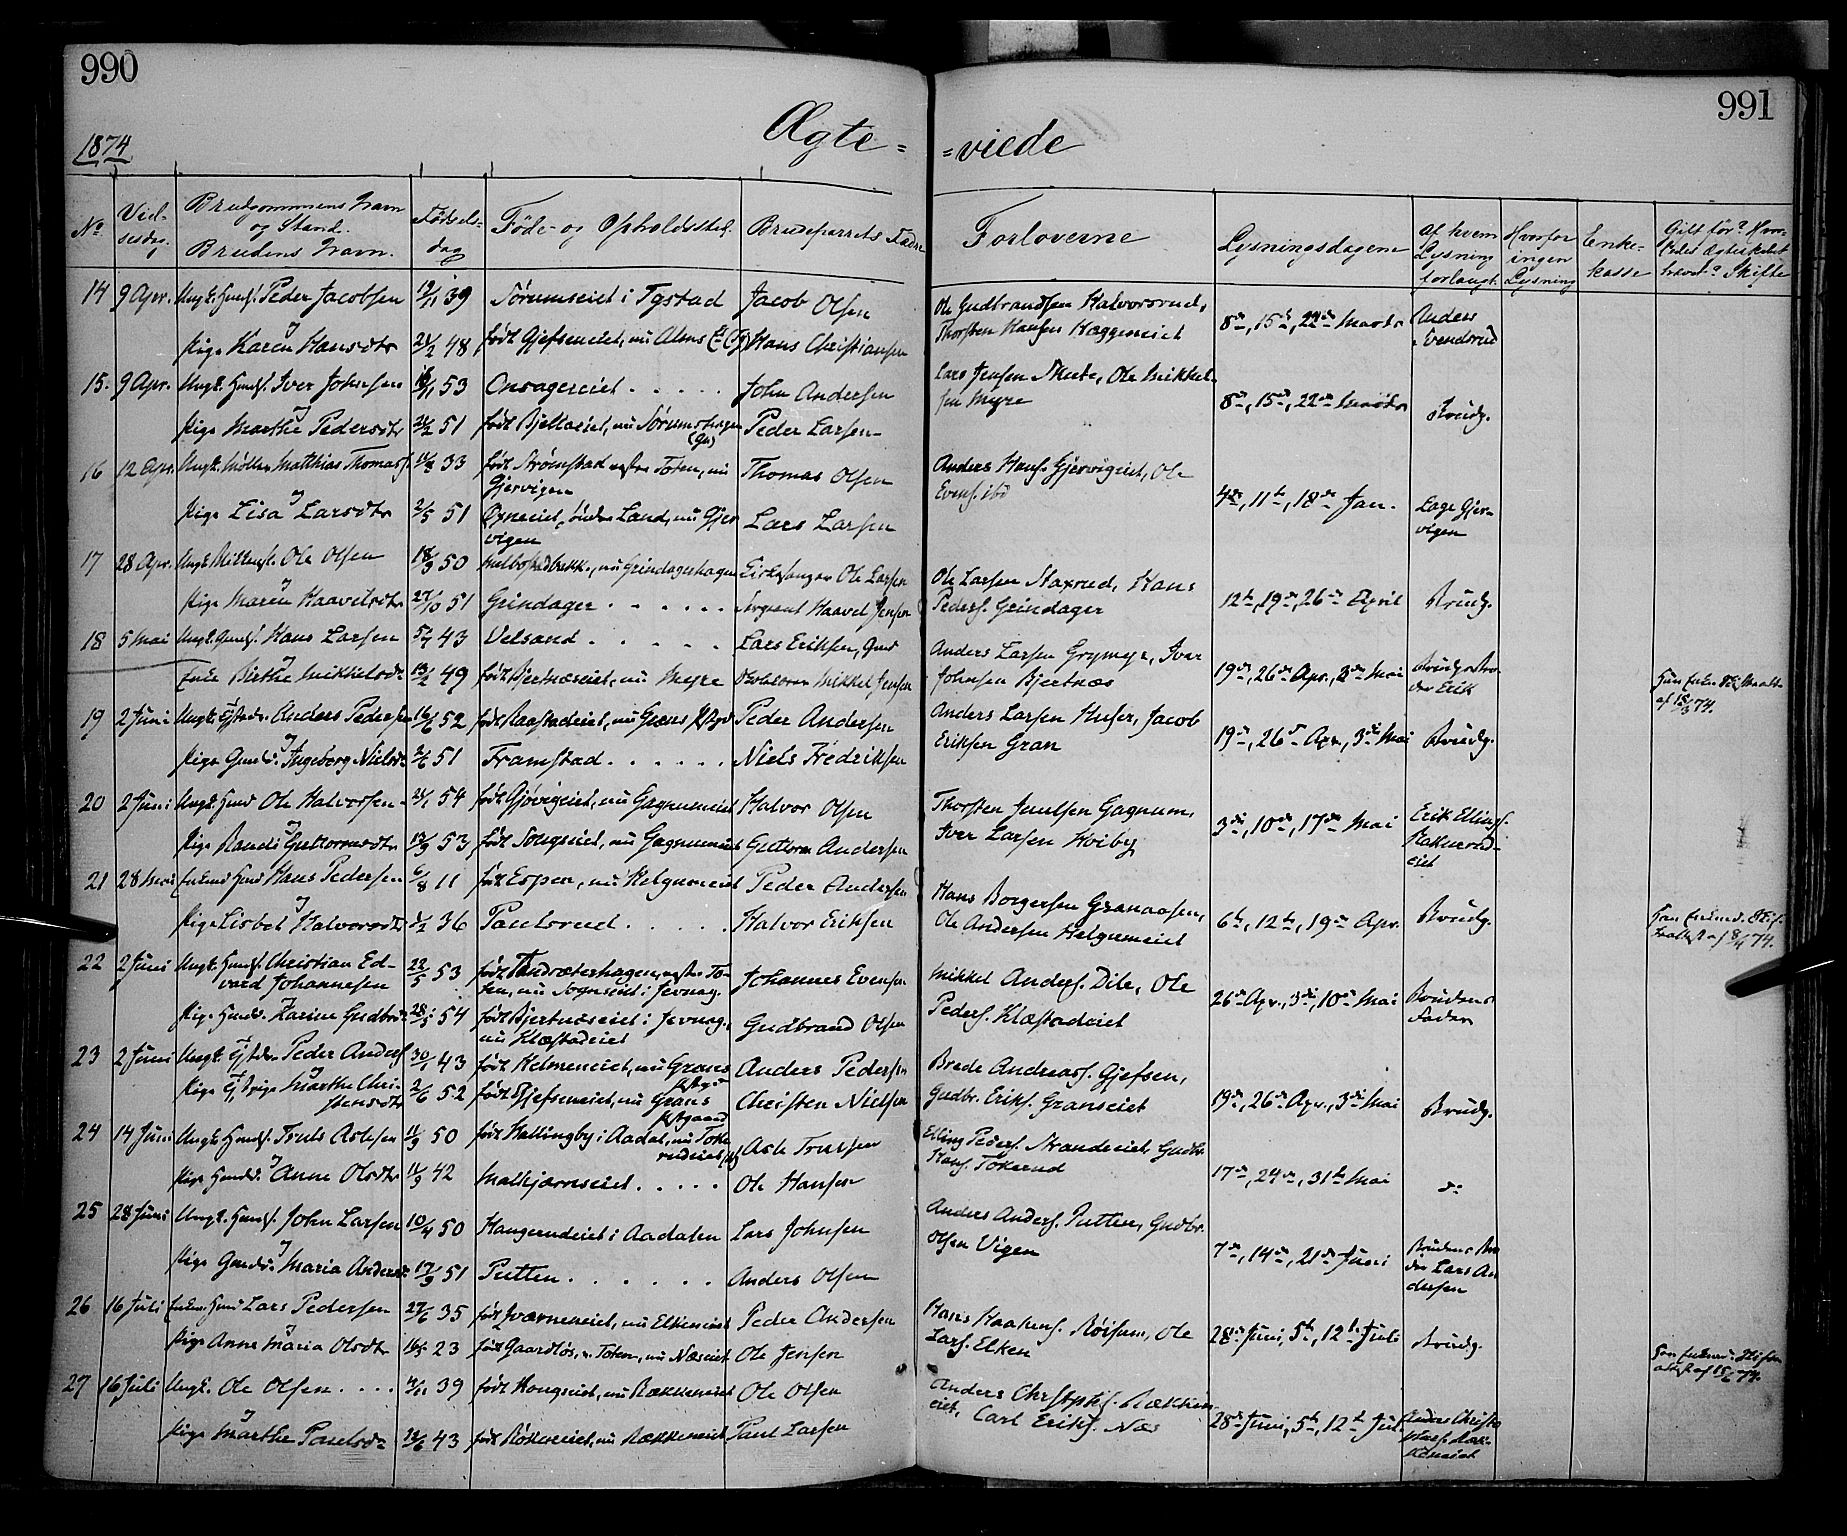 990
991
1874
Ægte=
=viede
No.
Viel-
sesdag.
Brudgommens Navn
og Stand.
Brudens Navn.
Fødsels-
dag
Føde- og Opholdssted.
Brudeparrets Fædre
Forloverne
Lysningsdagene
Af hvem
Lysning
forlangt.
Hvorfor
ingen
Lysning
Enke-
kasse
Gift før?
Skifte
14 9 Apr. Ungk. Huusf. Peder Jacobsen 39 Sørumseiet i Tystad Jacob Olsen
Ole Gudbrandsen Halvorsrud,
Thorsten Hansen Hæggeneiet
8de, 15de, 22de Marts
Anders
Evensrud
Pige Karen Hansdtr 24/2 48 født Gjefseneiet, nu Alms Hans Christiansen
15. 9 Apr. Ungk. Huusf. Iver Johnsen 53 Onsagereiet . . . . . John Andersen
Lars Jensen Skute, Ole Mikkel-
sen Myre
8de, 15de, 22de Marts
Brudg.
Pige Marthe Pedersdtr 51 født Bjelkaseiet, nu Sørumshagen Peder Larsen
16 12 Apr. Ungk. Møller Matthias Thomass. 33 født Strømstad vestre Toten, nu
Gjøvigen
Thomas Olsen
Anders Hans. Gjøvigeiet, Ole
Evens. ibd
4de, 11te, 18de Jan.
Lage Gjø-
vigen
Pige Lisa Larsdtr 2/5 51 Øxneeiet, søndre Land, nu Gjø-
vigen
Lars Larsen
17 28 Apr. Ole Olsen 18/9 50 nu Grindagershagen Kirkesanger Ole Larsen
Ole Larsen Staxrud, Hans
Peders. Grindager
12te, 19de, 26de April
Brudg.
Pige Maren Haavelsdtr 27/10 51 Grindager . . . . . . Sergeant Haavel Jensen
18 5 Mai Ungk. Gmdsf. Hans Larsen 43 Velsand . . . . . Lars Eriksen, Gmd
Anders Larsen Grymyr, Iver
Johnsen Bjertnæs
19de, 26de Apr., 3de Mai
Brudgs Bro-
der Erik
Enke Birthe Mikkelsdr 13/2 49 født Bjertnæseiet, nu Myre Mikkel Jensen
af 74.
19 2 Juni Ungk. Anders Pedersen 16/6 52 født Raastadeiet, nu Grans Pstgd Peder Andersen
Anders Larsen Huser, Jacob
Eriksen Gran
19de, 26de Apr., 3de Mai
Brudg.
Pige Gmds. Ingeborg Nielsd. 51 Framstad . . . . . . Niels Fredriksen
20 2 Juni Ungk. Huus Ole Halvorsen 54 født Gjøvigeiet, nu Gagnumeiet Halvor Olsen
Thorsten Juulsen Gagnum,
Iver Larsen Hvibÿ
3de, 10de, 17de Mai
Erik Ellings.
eiet
Pige Randi Guttormsdtr 13/9 53 født Sougseiet, nu Gagnumeiet Guttorm Andersen
21 Hans Pedersen 6/8 11 født Espen, nu Helgumeiet Peder Andersen
Hans Borgersen Granaasen,
Ole Andersen Helgumeiet
6te, 12te, 19de Apr.
Brudg.
Pige Lisbet Halvorsdtr 1/2 36 Paulsrud . . . . . Halvor Eriksen
22 2 Juni Ungk. Huusf. Christian Ed-
vard Johannesen
22/5 53 vestre To-
ten, nu Sogneeiet i Jevnag.
Johannes Evensen
Mikkel Anders. Dile, Ole
Peders. Klæstadeiet
26de Apr., 3de, 10de Mai
Brudens
Fader
Pige Huusds. Karine Gudbrdr 54 født Bjertnæseiet i Jevnag.,
nu Klæstadeiet
Gudbrand Olsen
23 2 Juni Ungk. Peder Anders. 30/1 43 født Helmeneiet, nu Grans
Anders Pedersen
Brede Andreass. Gjefsen,
Gudbr. Eriks. Granseiet
19de, 26de Apr., 3de Mai
Brudg.
Pige Marthe Chri-
stensdtr
2/6 52 født Gjefseneiet, nu Grans
Pstgaard
Christen Nielsen
24 14 Juni Ungk. Huusf. Truls Asksen 11/9 50 født Hallingby i Aadal, nu Toke-
rudeiet
Ask Trulsen
Elling Peders. Strandeiet, Gudbr.
Hans. Tokerud
17de, 24de, 31te Mai
do
Pige Huusds. Anne Olsdtr 42 . . . . . Ole Hansen
25 28 Juni Ungk. Huusf. John Larsen 10/4 50 Haugerudeiet i Aadalen Lars Johnsen
Anders Anders. Putten, Gudbr.
Olsen Vigen
7de, 14de, 21de Juni
Brudens Bro-
der Lars An-
dersen
Pige Gmds. Maria Andersd. 17/9 51 Putten . . . . . . Anders Olsen
26 16 Juli Enkem. Huus Lars Pedersen 27/6 35 nu Elkeneiet Peder Andersen
Hans Haakens. Røisum, Ole
Lars. Elken
28de Juni, 5te, 12te Juli
Brudg.
Pige Anne Maria Olsdtr 23 født Gaardløs, v. Toten, nu Næseiet Ole Jensen
27 16 Juli Ungk. Ole Olsen . . . . 39 født Hougseiet, nu Rækkeneiet Ole Olsen
Anders Christophs. Rækken-
eiet, Carl Eriks. Næs
28de Juni, 5te, 12te Juli
Anders Christo-
phers. Ræk-
keneiet
Pige Marthe Paulsdr 43 født Røkeneiet, nu Rækkeneiet Paul Larsen